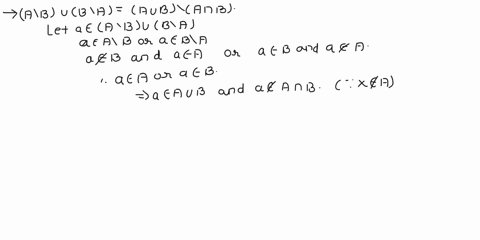 →(A\B) ∪ (B\A) = (A∪B)\(A∩B).
Let a∈(A\B)∪(B\A)
a∈A\B or a∈B\A
a∉B and a∈A or a∈B and a∉A.
∴ a∈A or a∈B.
⇒ a∈A∪B and a∉A∩B. (∵ x∉A)